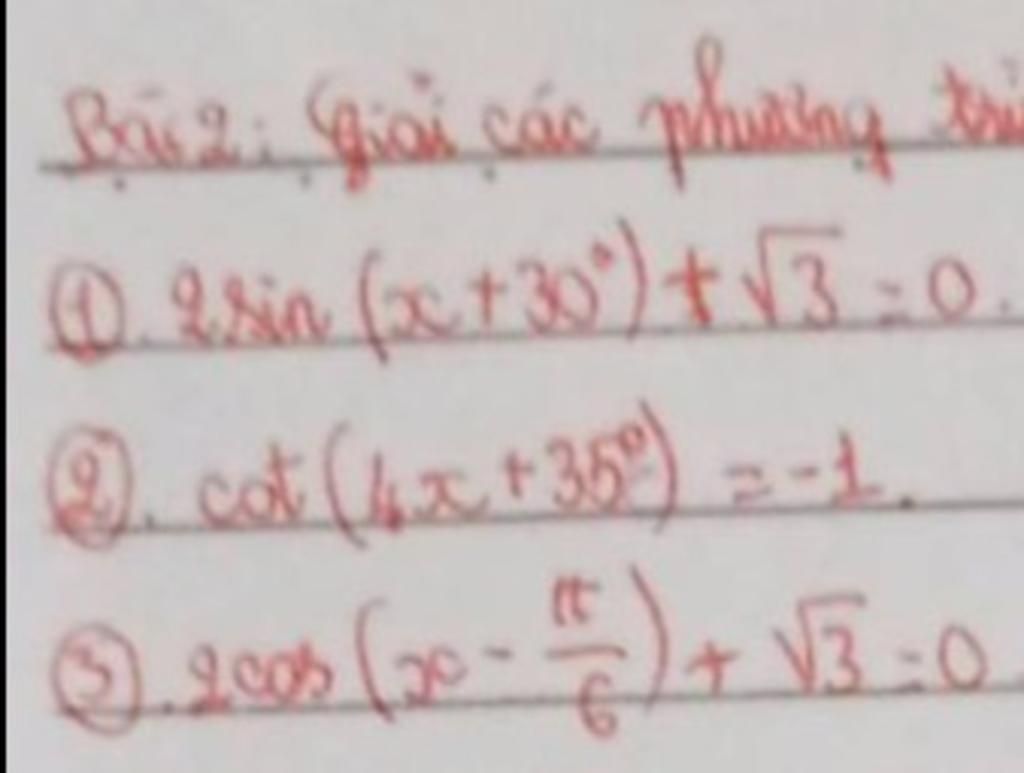 Bài 2: Giải các phương
①. 2sin (x + 30°) + √3 = 0.
②. cot (4x + 35°) = -1.
③. 2cos (x - π/6) + √3 = 0.